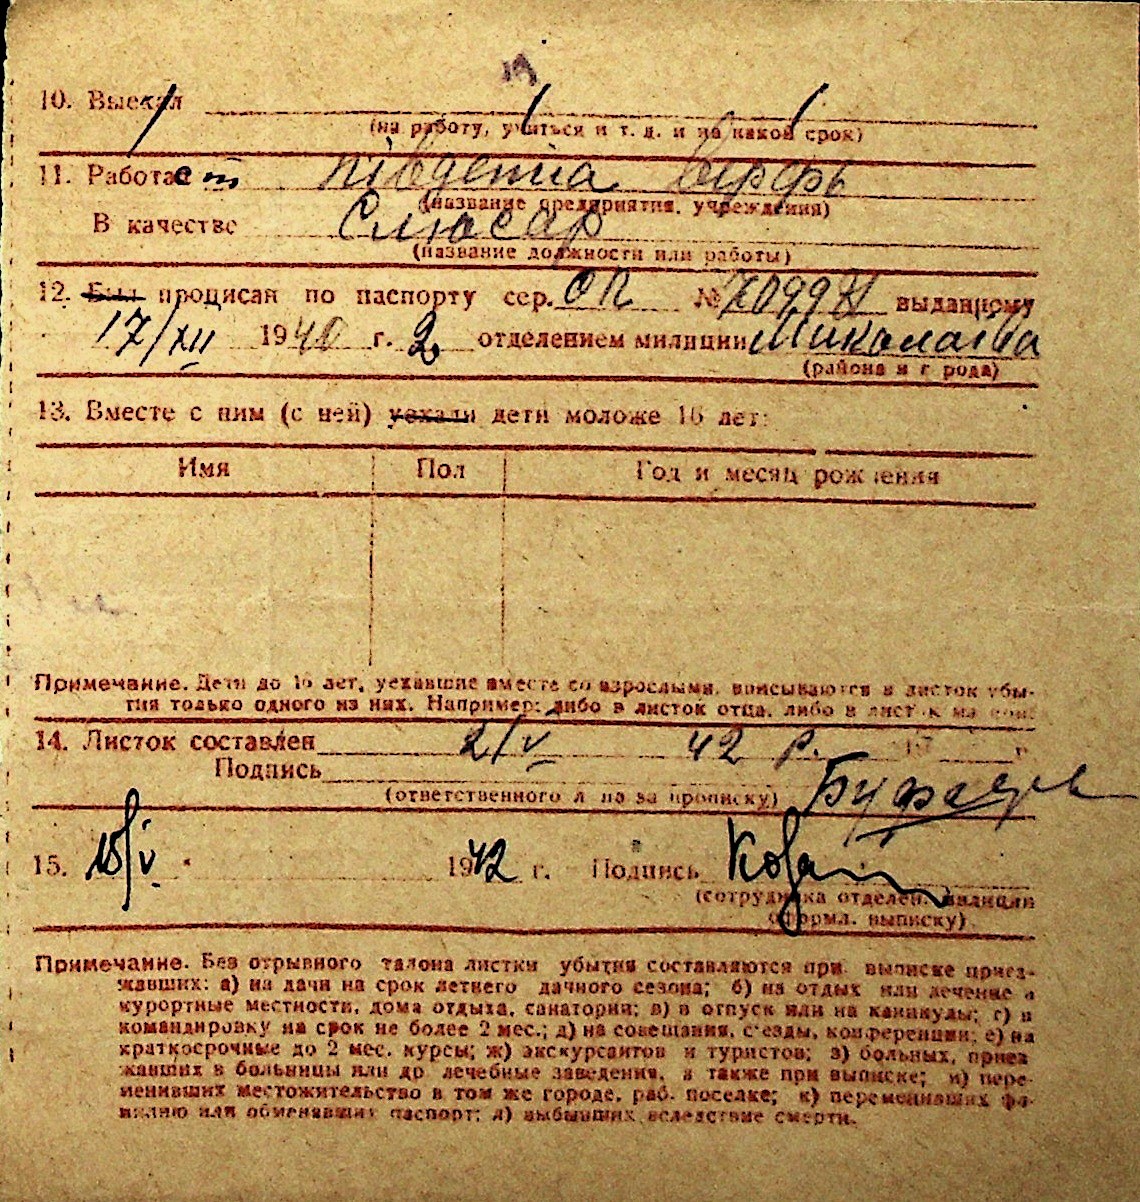 10. Выехал
(на работу, учиться и т. д. и на какой срок)
11. Работает південна верфь
(название предприятия, учреждения)
В качестве Слюсар
(название должности или работы)
12. Был прописан по паспорту сер. СП № 709981 выданному
17/XII 1940 г. 2 отделением милиции Миколаїва
(района и города)
13. Вместе с ним (с ней) уехали дети моложе 16 лет:
Имя Пол Год и месяц рождения
Примечание. Дети до 16 лет, уехавшие вместе со взрослыми, вписываются в листок убы-
тия только одного из них. Например: либо в листок отца, либо в листок матери.
14. Листок составлен 2/V 42 р.
Подпись
(ответственного лица за прописку)
15. 15/V 1942 г. Подпись
(сотрудника отделен. милиции
оформл. выписку)
Примечание. Без отрывного талона листки убытия составляются при выписке приез-
жавших: а) на дачи на срок летнего дачного сезона; б) на отдых или лечение в
курортные местности, дома отдыха, санатории; в) в отпуск или на каникулы; г) в
командировку на срок не более 2 мес.; д) на совещания, с'езды, конференции; е) на
краткосрочные до 2 мес. курсы; ж) экскурсантов и туристов; з) больных, приез
жавших в больницы или др лечебные заведения, а также при выписке; и) пере-
менивших местожительство в том же городе, раб. поселке; к) переменивших фа-
милию или обменявших паспорт; л) выбывших вследствие смерти.